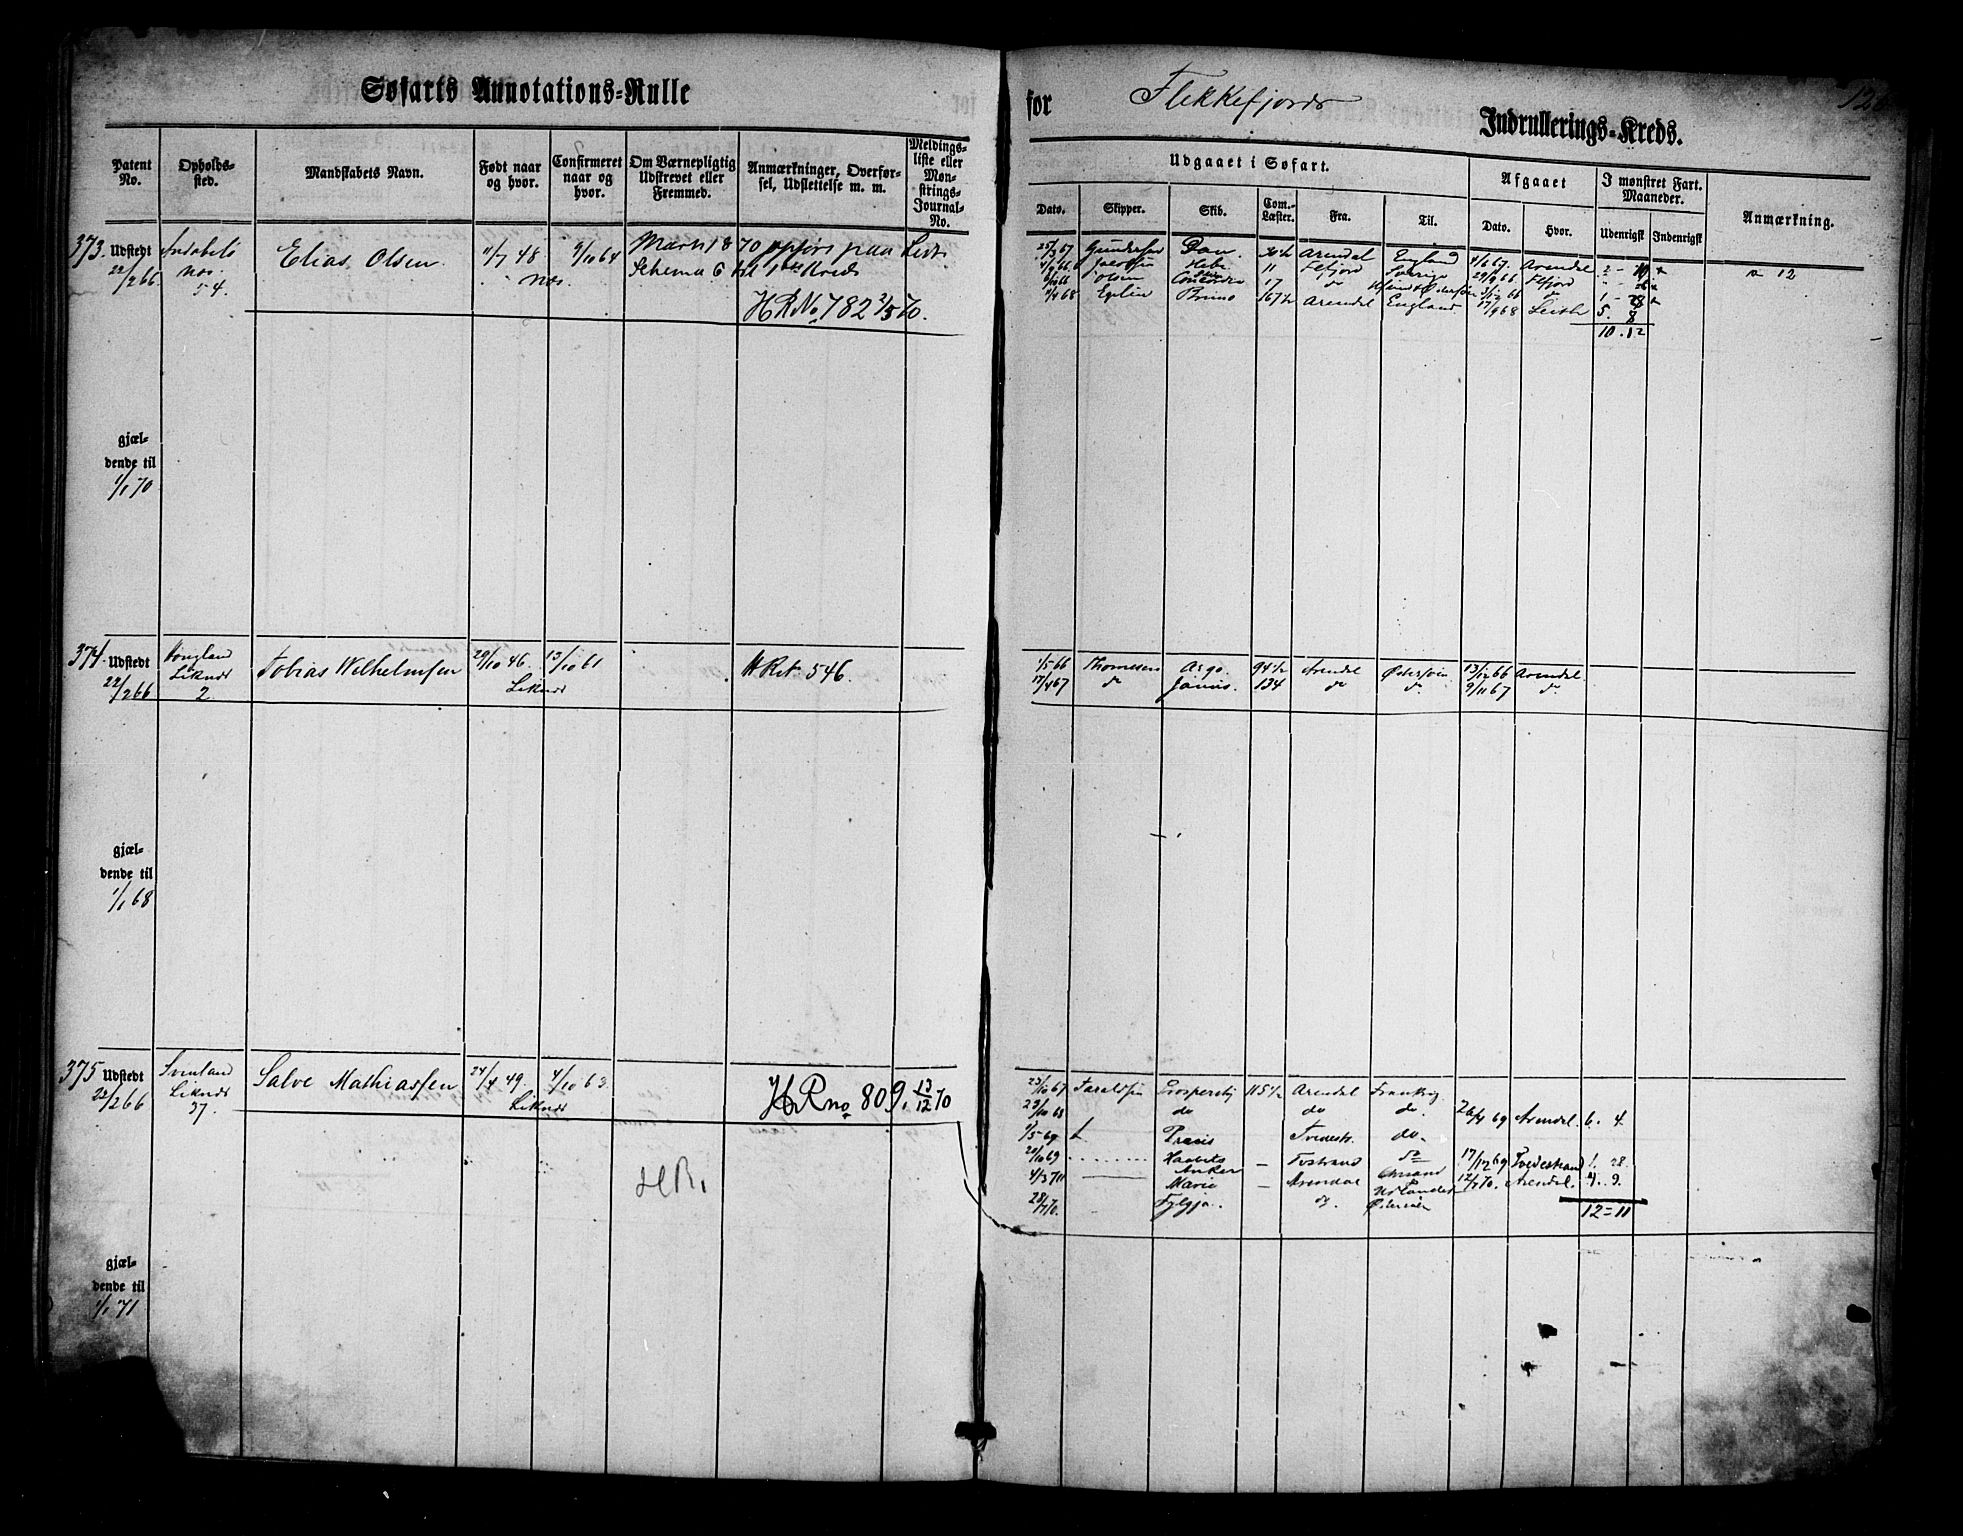 Søfarts Annotations-Rulle
for Flekkefjords Indrullerings-Kreds.
Patent No.
Opholds-sted.
Mandskabets Navn.
Født naar og hvor.
Confirmeret naar og hvor.
Om Værnepligtig Udskrevet eller Fremmed.
Anmærkninger, Overførsel, Udslettelse m. m.
Meldingsliste eller Mønstrings-Journal-No.
Udgaaet i Søfart.
Afgaaet
I mønstret Fart. Maaneder.
Anmærkning.
Dato. Skipper. Skib. Com.-Læster. Fra. Til. Dato. Hvor. Udenrigst Indenrigst
373. Udstedt 22/2 66
Nes 54.
Elias Olsen.
11/7 48 Nes.
9/10 64
Marts 1870 opført paa List
Schema 6 til 1ste Kreds
HRNo 782 2/5 70.
25/3 67 Gundersen Dan. Arendal England 4/6 67. Arendal 2 -
Jacobsen Hebe 11 Ffjord Sverige 29/9 66 Ffjord
Olsen Concordia 17 do 3/12 66 do 1 - 28
4/4 68 Bruno 67 1/2 Arendal England 17/9 68 Leith 5. 8
10 . 12
12
gjæl-
dende til
1/1 70
374. Udstedt 22/2 66
Liknes 2.
Tobias Wilhelmsen
29/10 46. Liknes
13/10 61
HRet 546.
1/5 66 Thomesen Argo. 94 1/2 Arendal Østersøen 13/12 66 Arendal.
17/4 67 do 134 do do 9/11 67 do
gjæl-
dende til
1/1 68
375 Udstedt 22/2 66
Svinland Liknes 37.
Salve Mathiassen
24/4 49. Liknes
4/10 63.
HRno 809. 13/12 70
HR.
23/10 67 Taraldsen 115 1/2 Arendal Frankrig
23/10 68 do do do. 26/4 69 Arendal. 6. 4.
1/5 69 Tvedestr. do.
20/10 69 Haabets Anker — do 17/12 69 Tvedestrand 1. 28
4/3 70 Marie — Arendal Udlandet 12/7 70. Arendal. 4. 9.
28/7 70. Fylgja. do. Østersøen 12 = 11
gjæl-
dende til
1/1 71